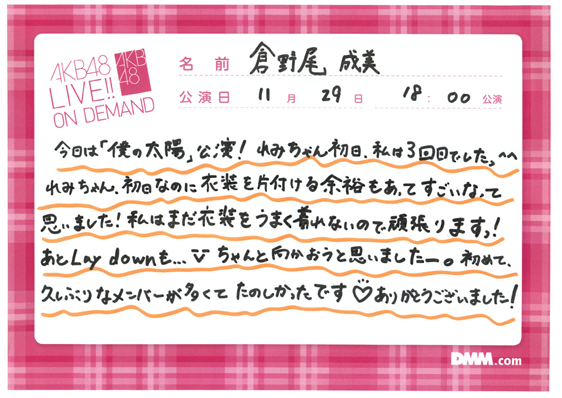 AKB48
LIVE!!
ON DEMAND
AKB
48
名前 倉野尾 成美
公演日 11月29日 18:00公演
今日は「僕の太陽」公演! れみちゃん初日、私は3回目でした。^^
れみちゃん、初日なのに衣装を片付ける余裕もあってすごいなって
思いました! 私はまだ衣装をうまく着れないので頑張りますっ!
あとLay downも...ちゃんと向かおうと思いましたー。初めて、
久しぶりなメンバーが多くてたのしかったです♡ありがとうございました!
DMM.com